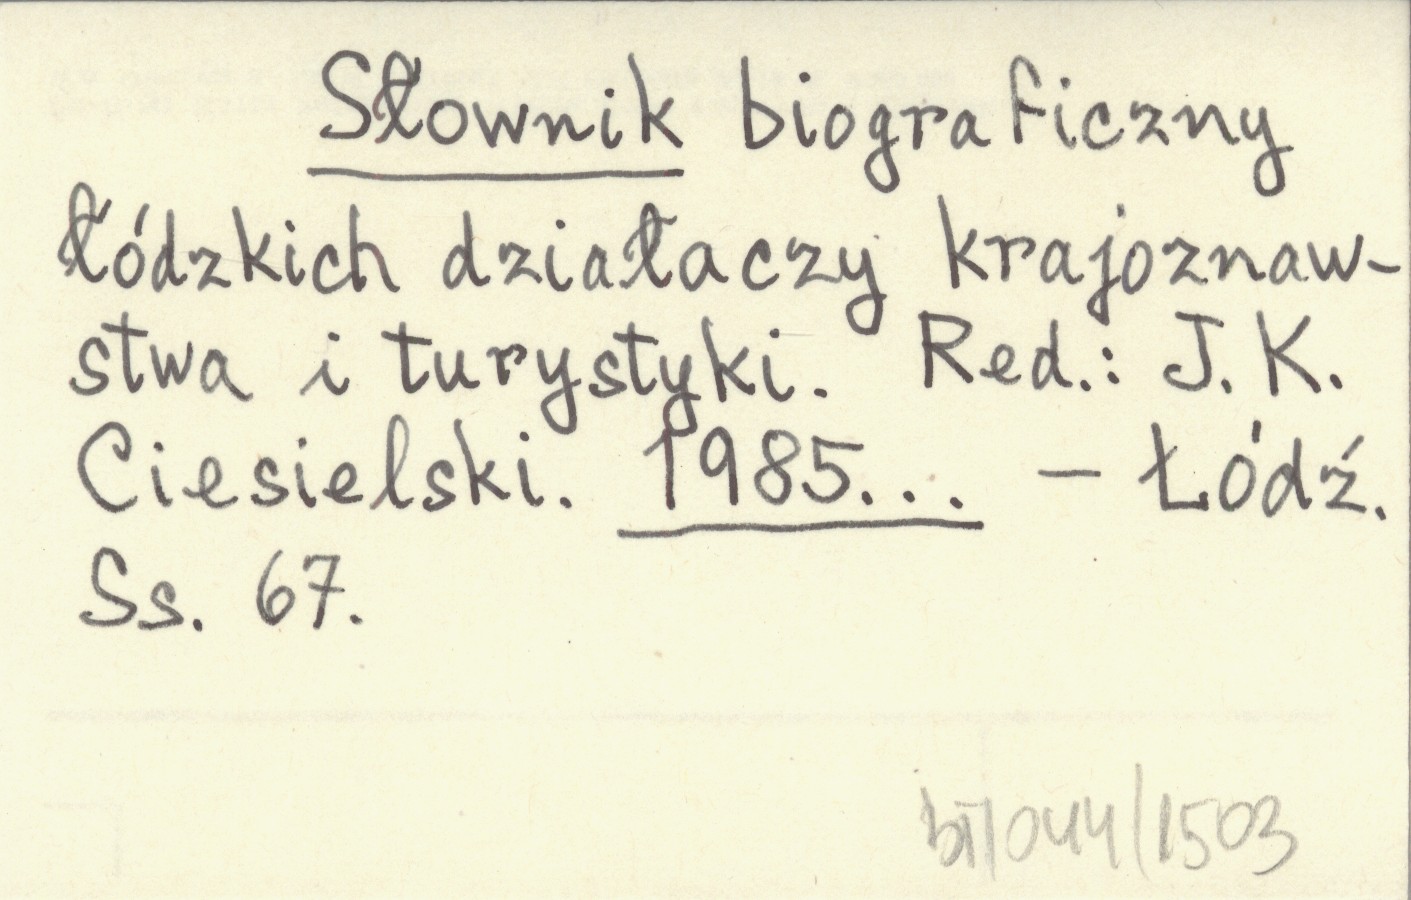 Słownik biograficzny
łódzkich działaczy krajoznaw-
stwa i turystyki. Red.: J. K.
Ciesielski. 1985... – Łódź.
Ss. 67.
bi/044/1503